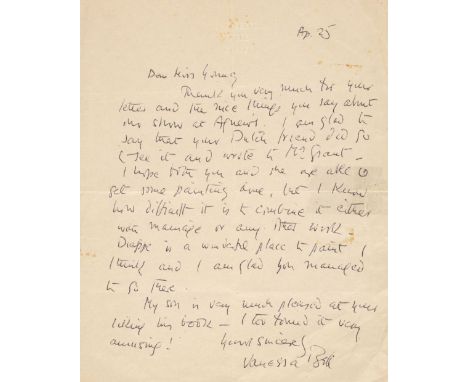 Ap. 25
Dear Miss Young
Thank you very much for your
letter and the nice things you say about
my show at Agnew's. I am glad to
say that your Dutch friend did go
& see it and wrote to Mr Grant -
I hope both you and she are able to
get some painting done, but I know
how difficult it is to combine it either
with marriage or any other work -
Dieppe is a wonderful place to paint I
think and I am glad you managed
to go there.
My son is very much pleased at your
liking his book - I too found it very
amusing!
Yours sincerely
Vanessa Bell